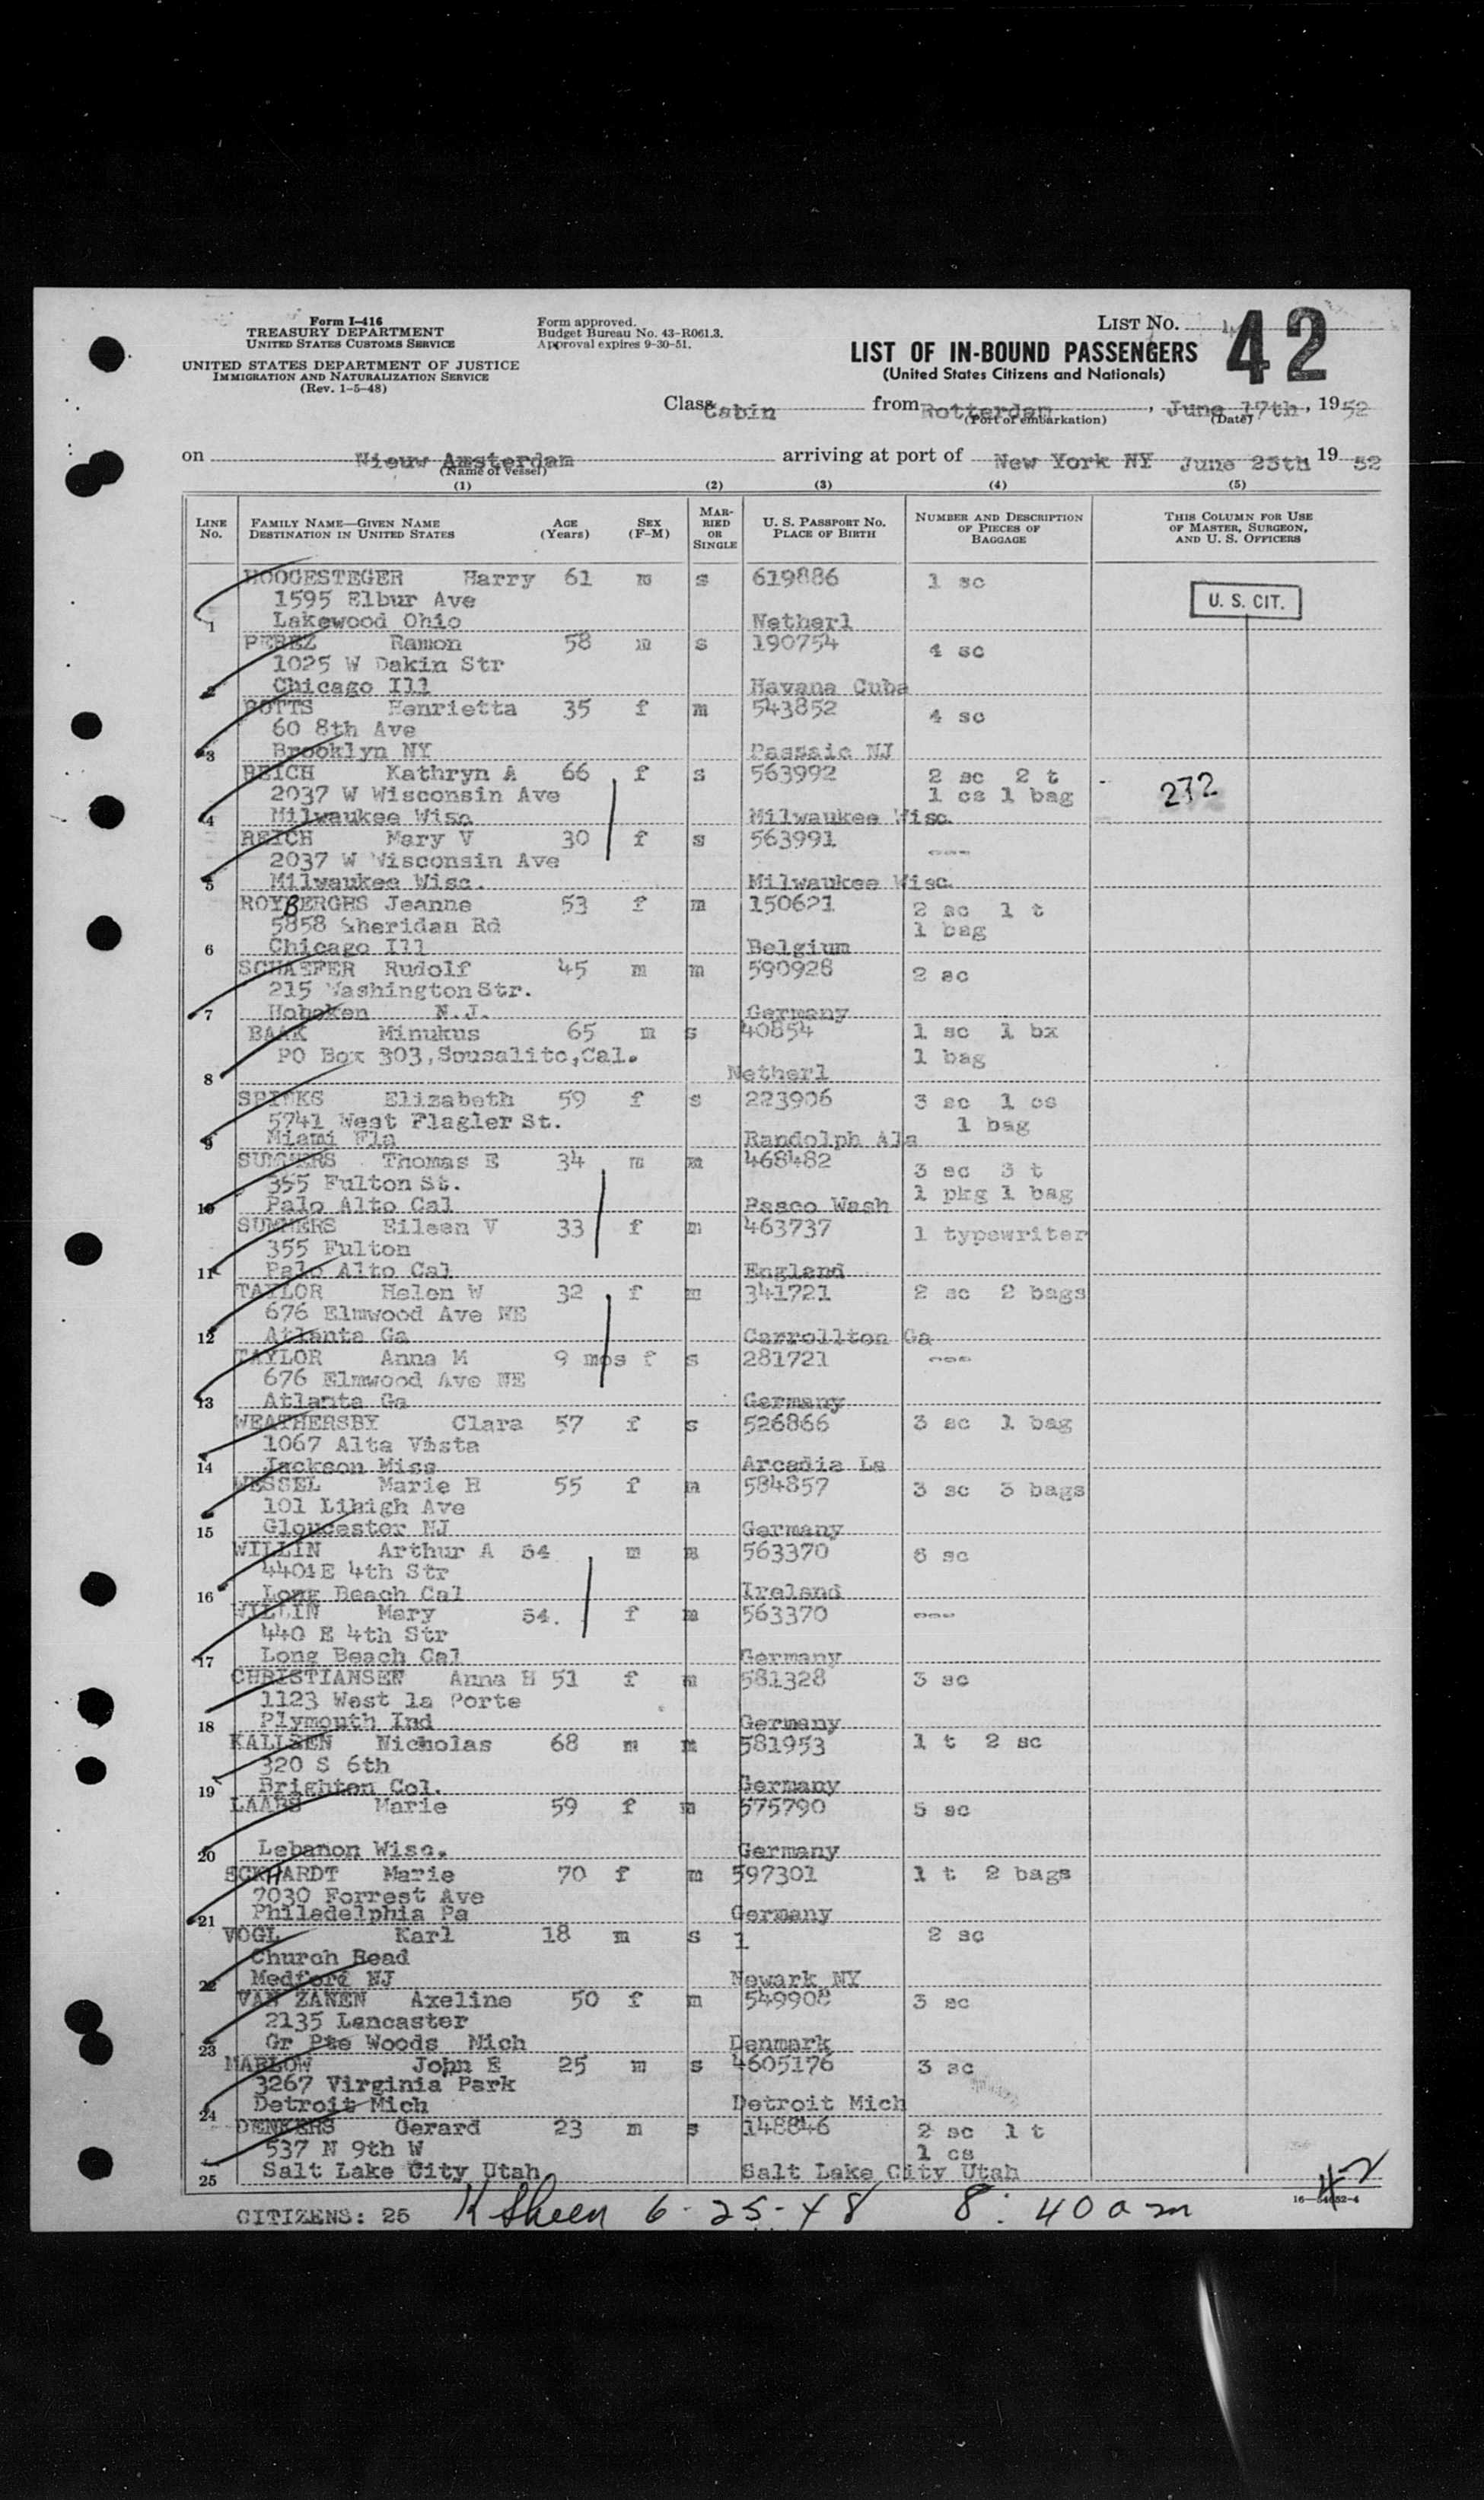 Form I-416
TREASURY DEPARTMENT
UNITED STATES CUSTOMS SERVICE
UNITED STATES DEPARTMENT OF JUSTICE
IMMIGRATION AND NATURALIZATION SERVICE
(Rev. 1-5-48)
Form approved.
Budget Bureau No. 43-R061.3.
Approval expires 9-30-51.
LIST No. 42
LIST OF IN-BOUND PASSENGERS
(United States Citizens and Nationals)
Class Cabin from Rotterdam, June 17th, 1952
(Port of embarkation) (Date)
on Nieuw Amsterdam arriving at port of New York NY June 25th 19 52
(Name of vessel)
(1) (2) (3) (4) (5)
LINE No. FAMILY NAME—GIVEN NAME DESTINATION IN UNITED STATES AGE (Years) SEX (F-M) MARRIED OR SINGLE U. S. PASSPORT No. PLACE OF BIRTH NUMBER AND DESCRIPTION OF PIECES OF BAGGAGE THIS COLUMN FOR USE OF MASTER, SURGEON, AND U. S. OFFICERS
HOOGESTEGER Harry 61 m s 619886 1 sc
1595 Elbur Ave U. S. CIT.
1 Lakewood Ohio Netherl
PEREZ Ramon 58 m s 190754 4 sc
1025 W Dakin Str
2 Chicago Ill Havana Cuba
POTTS Henrietta 35 f m 543852 4 sc
60 8th Ave
3 Brooklyn NY Passaic NJ
REICH Kathryn A 66 f s 563992 2 sc 2 t
2037 W Wisconsin Ave 1 cs 1 bag 272
4 Milwaukee Wisc. Milwaukee Wisc.
REICH Mary V 30 f s 563991 ---
2037 W Wisconsin Ave
5 Milwaukee Wisc. Milwaukee Wisc.
ROYBERGHS Jeanne 53 f m 150621 2 sc 1 t
5858 Sheridan Rd 1 bag
6 Chicago Ill Belgium
SCHAEFER Rudolf 45 m m 590928 2 sc
215 Washington Str.
7 Hoboken N.J. Germany
BAAK Minukus 65 m s 40854 1 sc 1 bx
PO Box 303,Sousalito,Cal. 1 bag
8 Netherl
SPINKS Elizabeth 59 f s 223906 3 sc 1 cs
5741 West Flagler St. 1 bag
9 Miami Fla Randolph Ala
SUMMERS Thomas E 34 m m 468482 3 sc 3 t
355 Fulton St. 1 pkg 1 bag
10 Palo Alto Cal Pasco Wash
SUMMERS Eileen V 33 f m 463737 1 typewriter
355 Fulton
11 Palo Alto Cal England
TAYLOR Helen W 32 f m 341721 2 sc 2 bags
676 Elmwood Ave NE
12 Atlanta Ga Carrollton Ga
TAYLOR Anna M 9 mos f s 281721 ---
676 Elmwood Ave NE
13 Atlanta Ga Germany
WEATHERSBY Clara 57 f s 526866 3 sc 1 bag
1067 Alta Vista
14 Jackson Miss Arcadia La
WESSEL Marie H 55 f m 584857 3 sc 3 bags
101 Lihigh Ave
15 Gloucester NJ Germany
WILLIN Arthur A 54 m m 563370 6 sc
4401E 4th Str
16 Long Beach Cal Ireland
WILLIN Mary 54. f m 563370 ---
440 E 4th Str
17 Long Beach Cal Germany
CHRISTIANSEN Anna H 51 f m 581328 3 sc
1123 West la Porte
18 Plymouth Ind Germany
KALLSEN Nicholas 68 m m 581953 1 t 2 sc
320 S 6th
19 Brighton Col. Germany
LAABS Marie 59 f m 575790 5 sc
20 Lebanon Wisc. Germany
ECKHARDT Marie 70 f m 597301 1 t 2 bags
7030 Forrest Ave
21 Philadelphia Pa Germany
VOGL Karl 18 m s 1 2 sc
Church Road
22 Medford NJ Newark NY
VAN ZANEN Axeline 50 f m 549908 3 sc
2135 Lancaster
23 Gr Pte Woods Mich Denmark
MARLOW John E 25 m s 4605176 3 sc
3267 Virginia Park
24 Detroit Mich Detroit Mich
DENKERS Gerard 23 m s 148846 2 sc 1 t
537 N 9th W 1 cs
25 Salt Lake City Utah Salt Lake City Utah
42
CITIZENS: 25 K Sheen 6-25-48 8:40 am